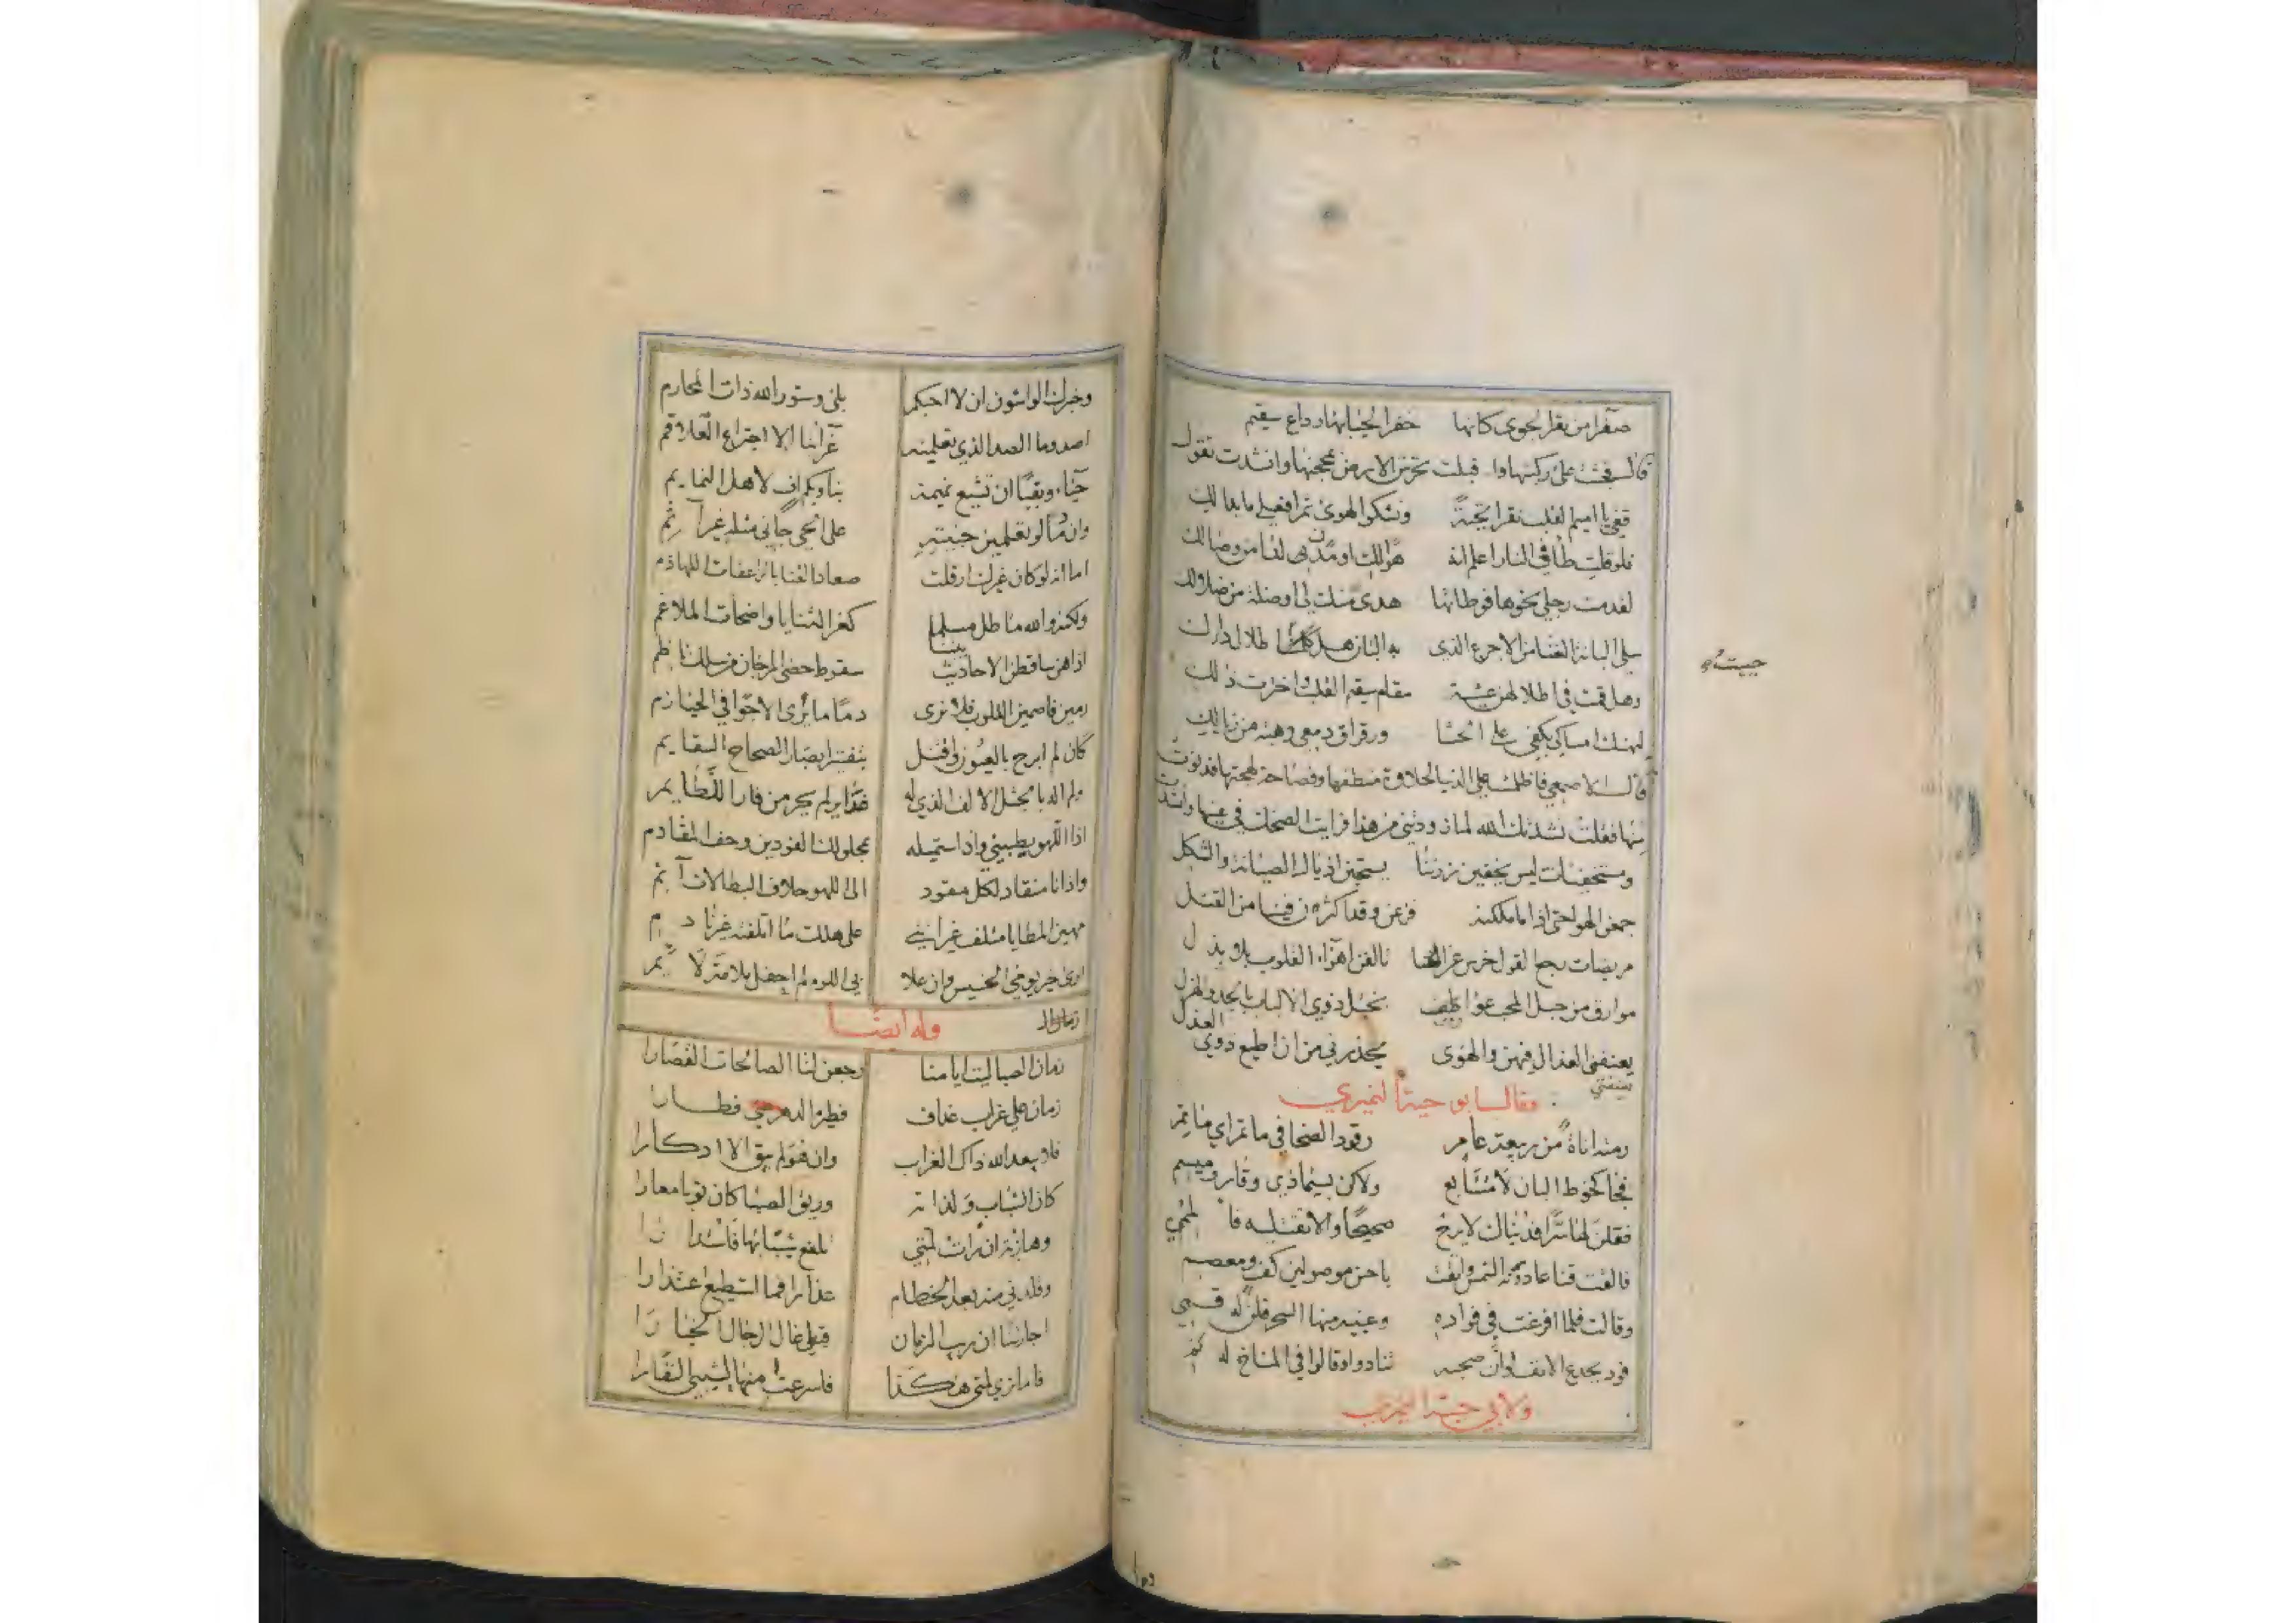 صفرا من بقر الجوى كانها خفر الحيا بها وداع سقيم
قال فجثت على ركبتيها واقبلت تخرش الارض بمحجنها وانشدت تقول
قفي يا اميم القلب نقرا تحية ونشكو الهوى ثم افعلي ما بدا لك
فلو قلت طأ في النار اعلم انه هوى لك او مدن لنا من وصالك
لقدمت رجلي نحوها فوطئتها هدى منك لي او ضلة من ضلالك
سلي البانة الغنا من الاجرع الذي به البان هل اطلال دارك
وهل قمت في اطلالهن عشية مقام سقيم القلب واخترت ذلك
ليهنك امساكي بكفي على الحشا ورقراق دمعي رهبة من زيالك
قال الاصمعي فاظلمت علي الدنيا لحلاوة منطقها وفصاحة لهجتها فدنوت
منها فقلت نشدتك الله لما زودتني من هذا فرايت الضحك في عينها وانشدت
ومستخفيات ليس يخفين زرننا يسحبن اذيال الصيانة والشكل
جمعن الهوى حتى اذا ما ملكنه نزعن وقد اكثرن فينا من القتل
مريضات رجع القول خرس عن الخنا تالفن اهواء القلوب بلا بذل
موارق من حبل المحب عواطف بختل ذوي الالباب بالجد والهزل
يعنفني العذال فيهن والهوى يحذرني من ان اطيع ذوي العذل
يعنفني
وقال ابو حية النميري
رمته اناة من ربيعة عامر رقود الضحى في ماتم اي ماتم
فجا كخوط البان لا متتابع ولاكن بسيما ذي وقار وميسم
فقلن لها سرا فديناك لا يرح صحيحا والا تقتليه فالممي
فالقت قناعا دونه الشمس واتقت باحسن موصولين كف ومعصم
وقالت فلما افرغت في فواده وعينيه منها السحر قلن له قم
فود بجدع الانف لو ان صحبه تنادوا وقالوا في المناخ له نم
ولابي حية النميري
حيته
وخبرك الواشون ان لا احبكم بلى وستور الله ذات المحارم
اصد وما الصد الذي تعلمينه عزاء بنا الا اجتراع العلاقم
حياء وبقيا ان تشيع نميمة بنا وبكم اف لاهل النمايم
وان دما لو تعلمين جنيته على الحي جاني مثله غير آثم
اما انه لو كان غيرك ارقلت صعاد القنا بالراعفات اللهاذم
ولكنه والله ما طل مسلما كغر الثنايا واضحات الملاغم
اذا هن ساقطن الاحاديث بيننا سقوط حصى المرجان من سلك ناظم
رمين فاصمين القلوب فلا ترى دما مائرا الا جوا في الحيازم
كان لم ابرح بالعيون واقتتل بتفتير ابصار الصحاح السقايم
ولم اله بالحدث الالف الذي له غداير لم يحرمن فار اللطايم
اذا اللهو يطبيني واذ استميله بمحلولك الفودين وحف المقادم
واذ انا منقاد لكل مقود الى اللهو حلاف البطالات آثم
مهين المطايا متلف غير انني على هلك ما اتلفته غير نادم
ارى خير يومي الخسيس وان غلا بي اللوم لم احفل ملامة لايم
زمان الـ وله ايضا
زمان الصبا ليت ايامنا رجعن لنا الصالحات القصارا
زمان علي غراب غداف فطيره الدهر عني فطارا
فلا يبعد الله ذاك الغراب وان هو لم يبق الا ادكارا
كان الشباب ولذاته وريق الصبا كان ثوبا معارا
وهازئة ان رات لمتي تلفع شيب بها فاستدارا
وقلدني منه بعد الخطام عذارا فما استطيع اعتذارا
اجارتنا ان ريب الزمان قبلي غال الرجال الخيارا
فاما تري لمتي هكذا فاسرعت منها لشيبي النفارا